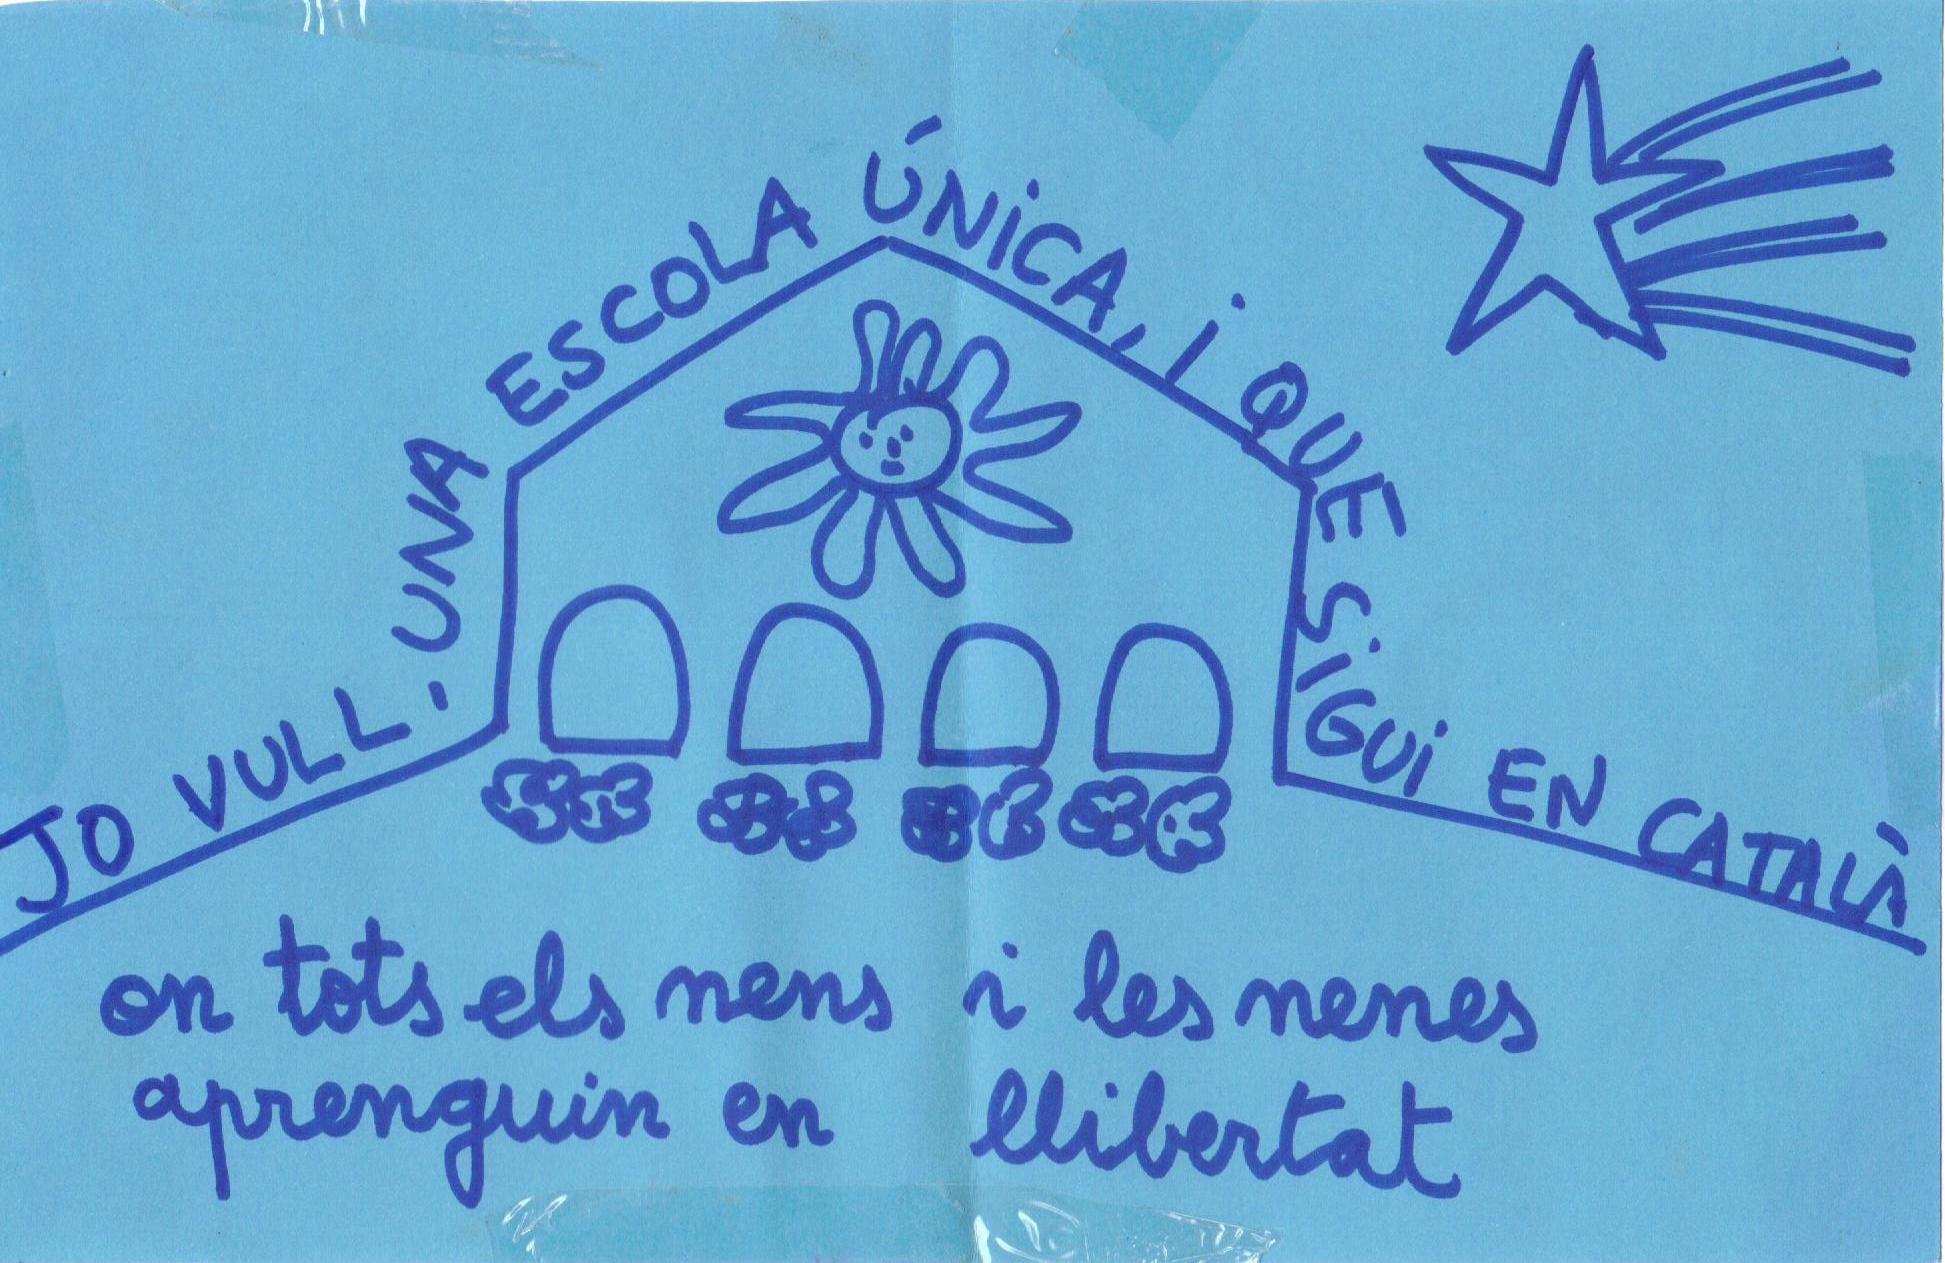 JO VULL, UNA ESCOLA ÚNiCA, i QUE SiGUi EN CATALÀ
on tots els nens i les nenes
aprenguin en llibertat